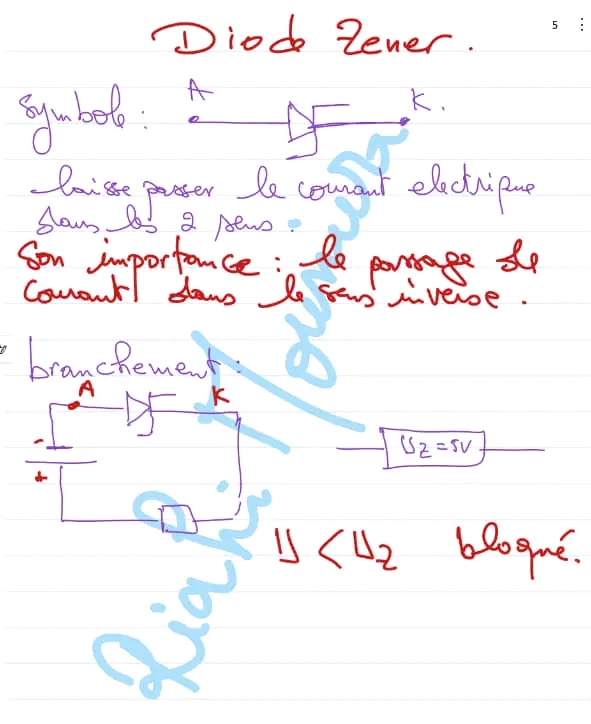 5
Diode Zener.
Symbole: A K.
laisse passer le courant electrique
dans les 2 sens.
Son importance: le passage de
courant dans le sens inverse.
branchement:
A K
- UZ = 5V
+
U < UZ bloqué.
Riahi Mounira